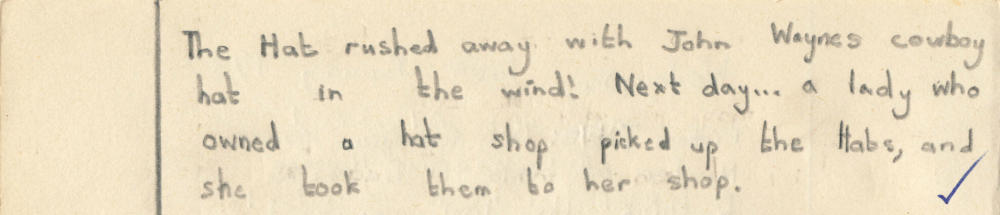 The Hat rushed away with John Waynes cowboy
hat in the wind! Next day... a lady who
owned a hat shop picked up the Hats, and
she took them to her shop.